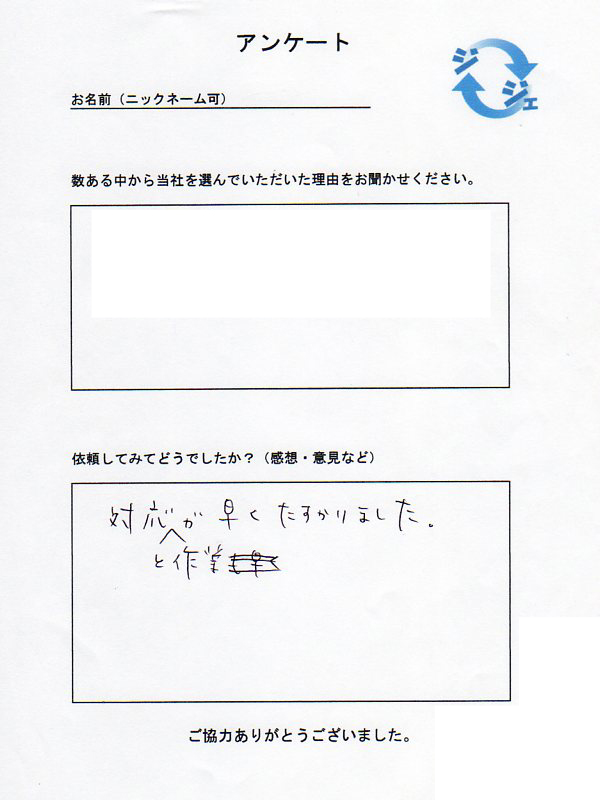 アンケート
ジジェ
お名前（ニックネーム可）
数ある中から当社を選んでいただいた理由をお聞かせください。
依頼してみてどうでしたか？（感想・意見など）
対応が早くたすかりました。
と作業
ご協力ありがとうございました。